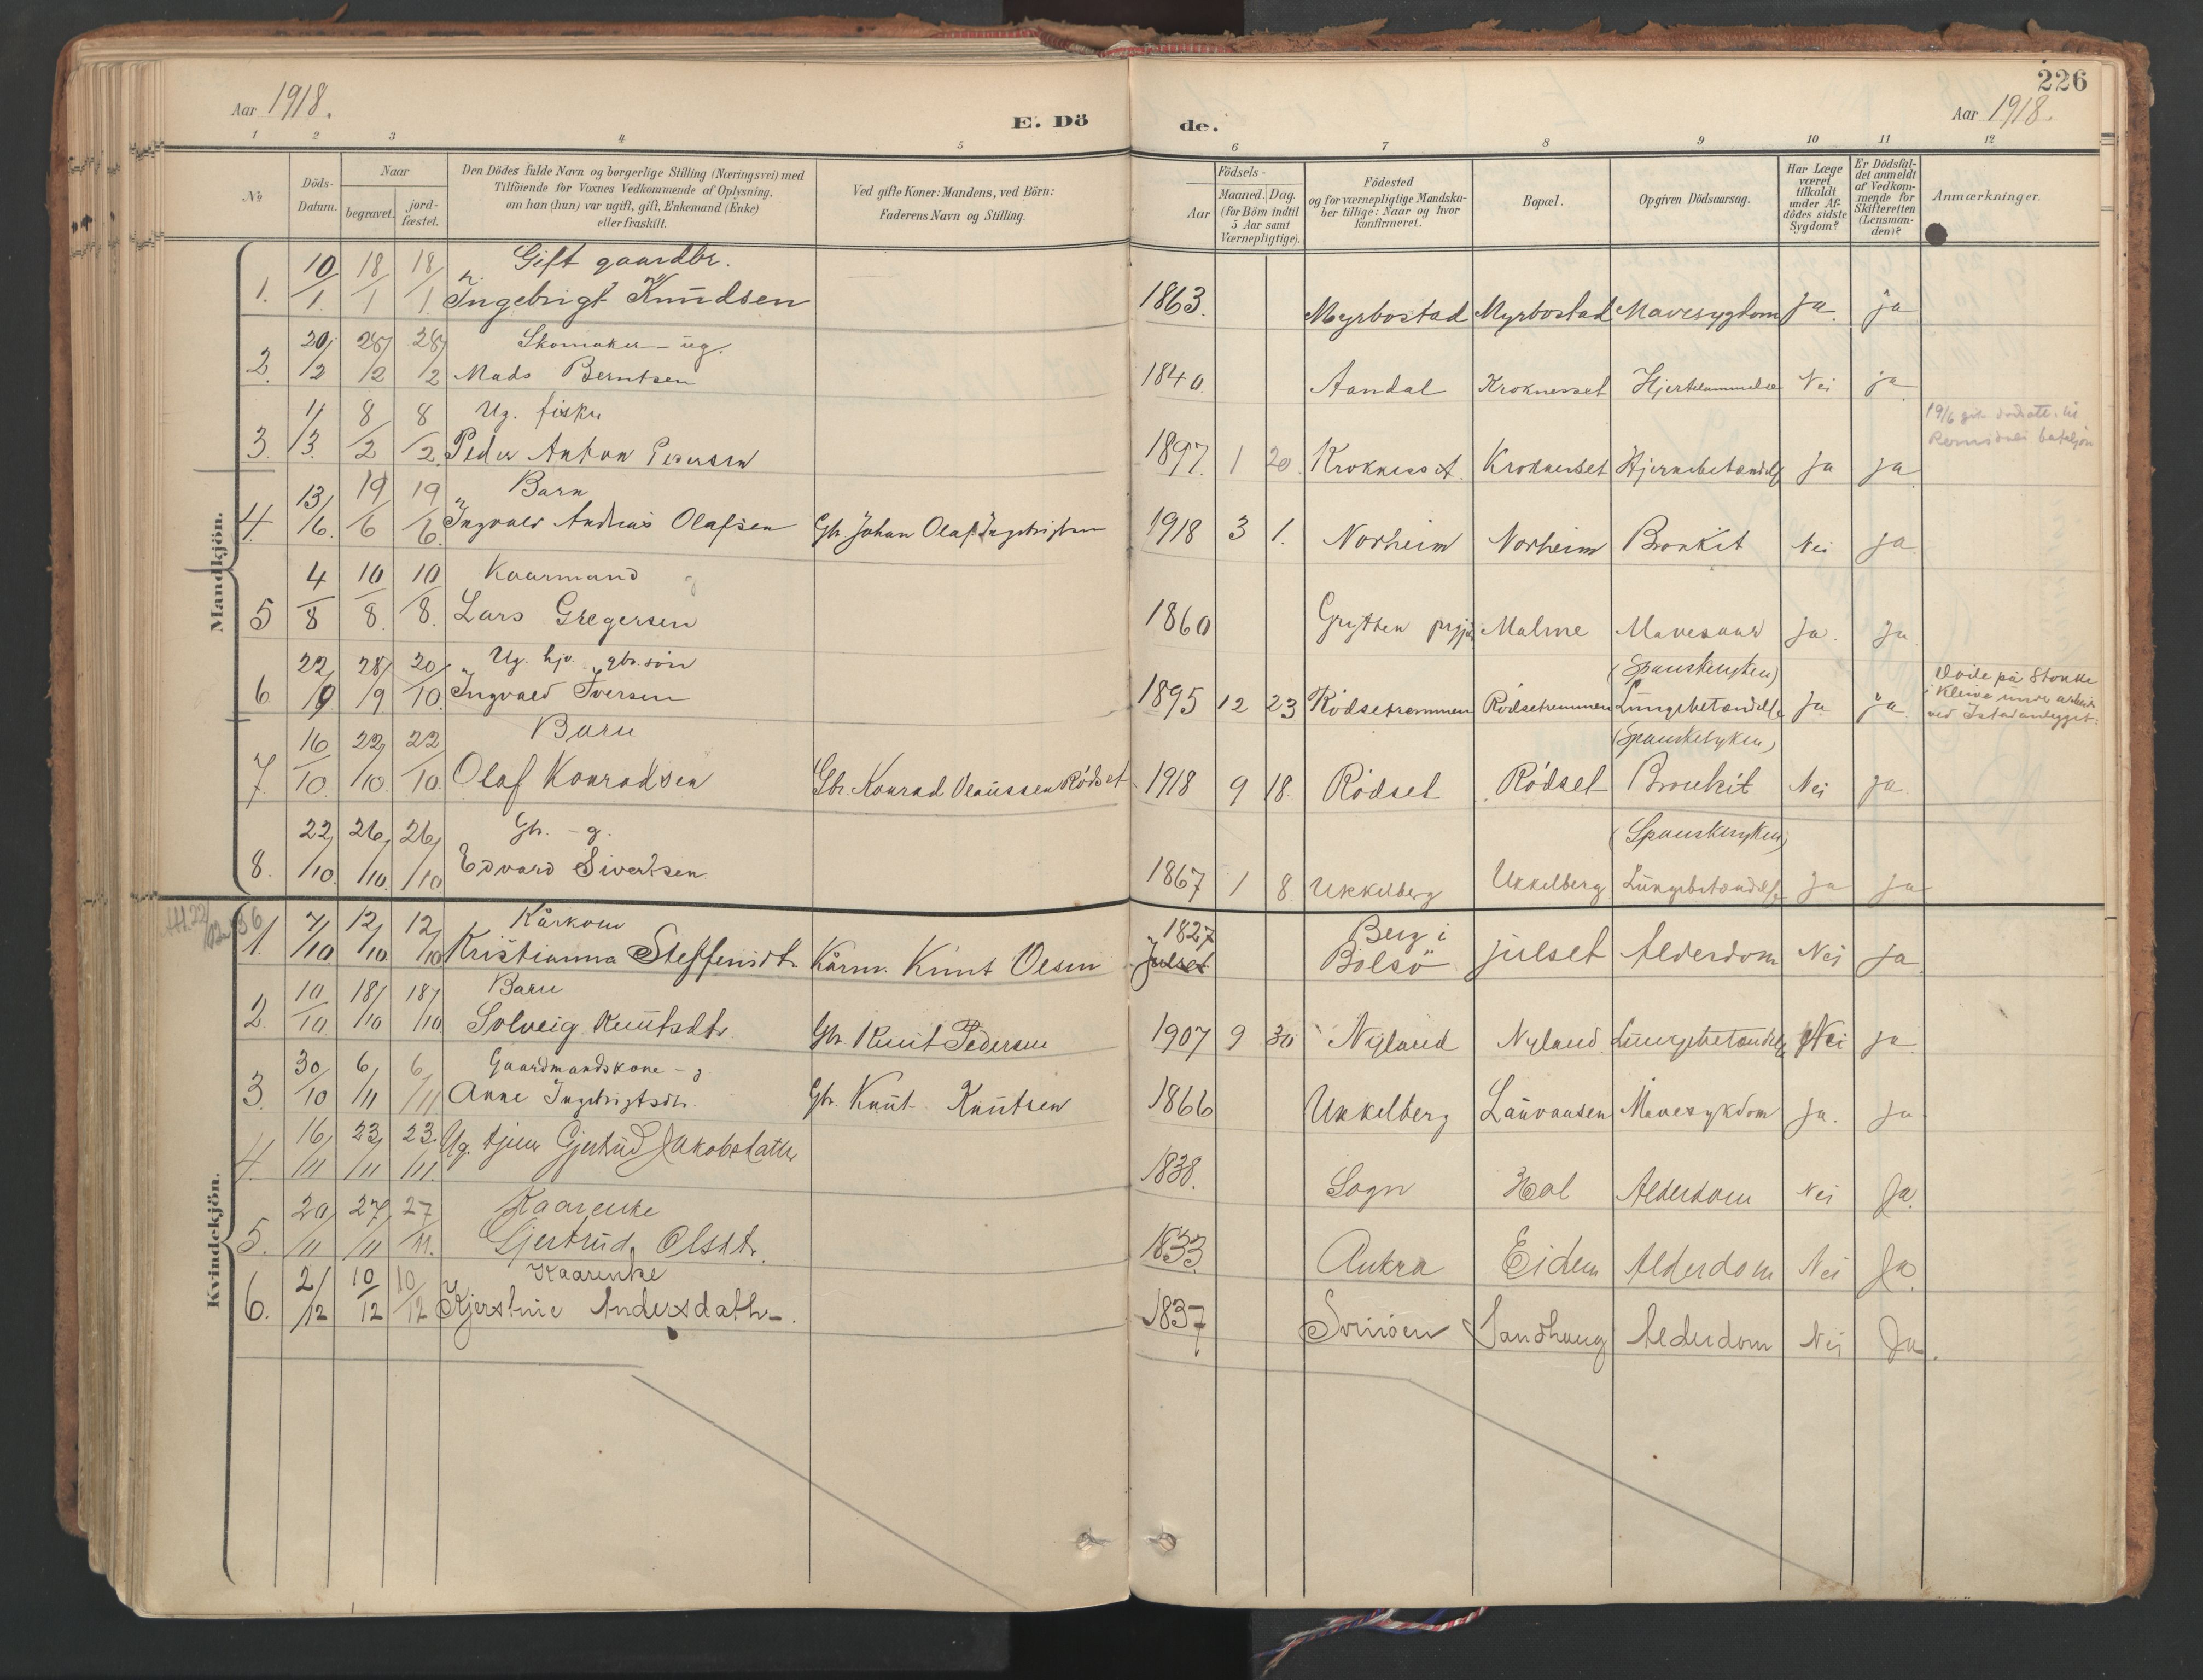 226
Aar 1918.
Aar 1918.
E. Dö
de.
1 2 3 4 5 6 7 8 9 10 11 12
No
Döds-
Datum.
Naar
begravet.
jord-
fæstet.
Den Dödes fulde Navn og borgerlige Stilling (Næringsvei) med
Tilföiende for Voxnes Vedkommende af Oplysning,
om han (hun) var ugift, gift, Enkemand (Enke)
eller fraskilt.
Ved gifte Koner: Mandens, ved Börn:
Faderens Navn og Stilling.
Födsels-
Aar
Maaned. Dag.
(for Börn indtil
5 Aar samt
Værnepligtige).
Födested
og for værnepligtige Mandska-
ber tillige: Naar og hvor
konfirmeret.
Bopæl.
Opgiven Dödsaarsag.
Har Læge
været
tilkaldt
under Af-
dödes sidste
Sygdom?
Er Dödsfal-
det anmeldt
af Vedkom-
mende for
Skifteretten
(Lensman-
den)?
Anmærkninger.
Mandkjön.
Gift gaardbr.
1. 10/1. 18/1 18/1. Ingebrigt Knudsen 1863. Myrbostad Myrbostad Mavesygdom Ja. ja
Skomaker - ug.
2. 20/2 28/2 28/2 Mads Berntsen 1840. Aandal Kroknesset Nei ja
Ug. fisker
3. 1/3. 8/2 8/2. Peder Anton 1897. 1 20. Kroknesset Kroknesset Hjernebetændelse Ja ja
19/6
Barn
4. 13/6. 19/6 19/6. Ingvald Andreas Olafsen Gbr. Johan Olaf Ingebrigtsen 1918 3 1. Norheim Norheim Bronkit Nei ja
Kaarmand g
5 4/8 10/8. 10/8. Lars Gregersen 1860 Grytten Malme Mavesaar Ja. Ja
Ug. gbr. søn (Spanskesyken)
6. 22/9 28/9 20/10. Ingvald Iversen 1895 12 23 Rödsetremmen Rödsetremmen Lungebetændelse Ja ja
Döde på Stokke
i Kleive under arbeide
ved Istadanlegget.
Barn (Spanskesyken)
7. 16/10. 22/10. 22/10. Olaf Konradsen Gbr. Konrad Olaussen Rödset 1918 9 18. Rödset Rödset Bronkit Nei ja
Gbr. - g. (Spanskesyken)
8. 22/10. 26/10. 26/10 Edvard Sivertsen 1867 1 8 Ukkelberg Ukkelberg Lungebetændelse Ja ja
Kvindekjön.
Kårkone
1. 7/10 12/10 12/10 Kristianna Steffensdtr. Kårm. Knut Olsen 1827 Julset Berg i Bolsö julset Alderdom Nei Ja
Barn
2. 10/10 18/10 18/10 Solveig Knutsdtr. Gbr. Knut Pedersen 1907 9 30 Nyland Nyland Lungebetændelse Nei ja
Gaardmandskone - g
3. 30/10 6/11 6/11 Anne Ingebrigtsdtr. Gbr. Knut Knutsen 1866 Ukkelberg Lauvaasen Mavesykdom Ja. Ja
4. 16/11 23/11 23/11. Ug. tjener Gjertrud Jakobsdatter 1838. Sogn Hol Alderdom Nei Ja.
Kaarenke
5. 20/11 27/11 27/11. Gjertrud Olsdtr. 1833. Aukra Eidem Alderdom Nei Ja.
Kaarenke
6. 2/12 10/12 10/12 Kjerstine Andersdatter. 1837 Sandhaug Alderdom Nei Ja.